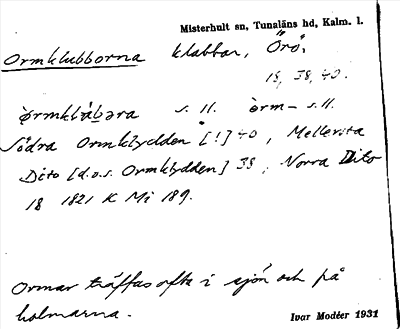 Misterhult sn, Tunaläns hd, Kalm. l.
Ormklubborna klabbar, Örö,
18, 38, 40.
s. ll. òrm- s. ll.
Södra Ormklydden [!] 40, Mellersta
Dito [d.v.s. Ormklydden] 38, Norra Dito
18 1821 K Mi 189.
Ormar träffas ofta i sjön och på
holmarna.
Ivar Modéer 1931